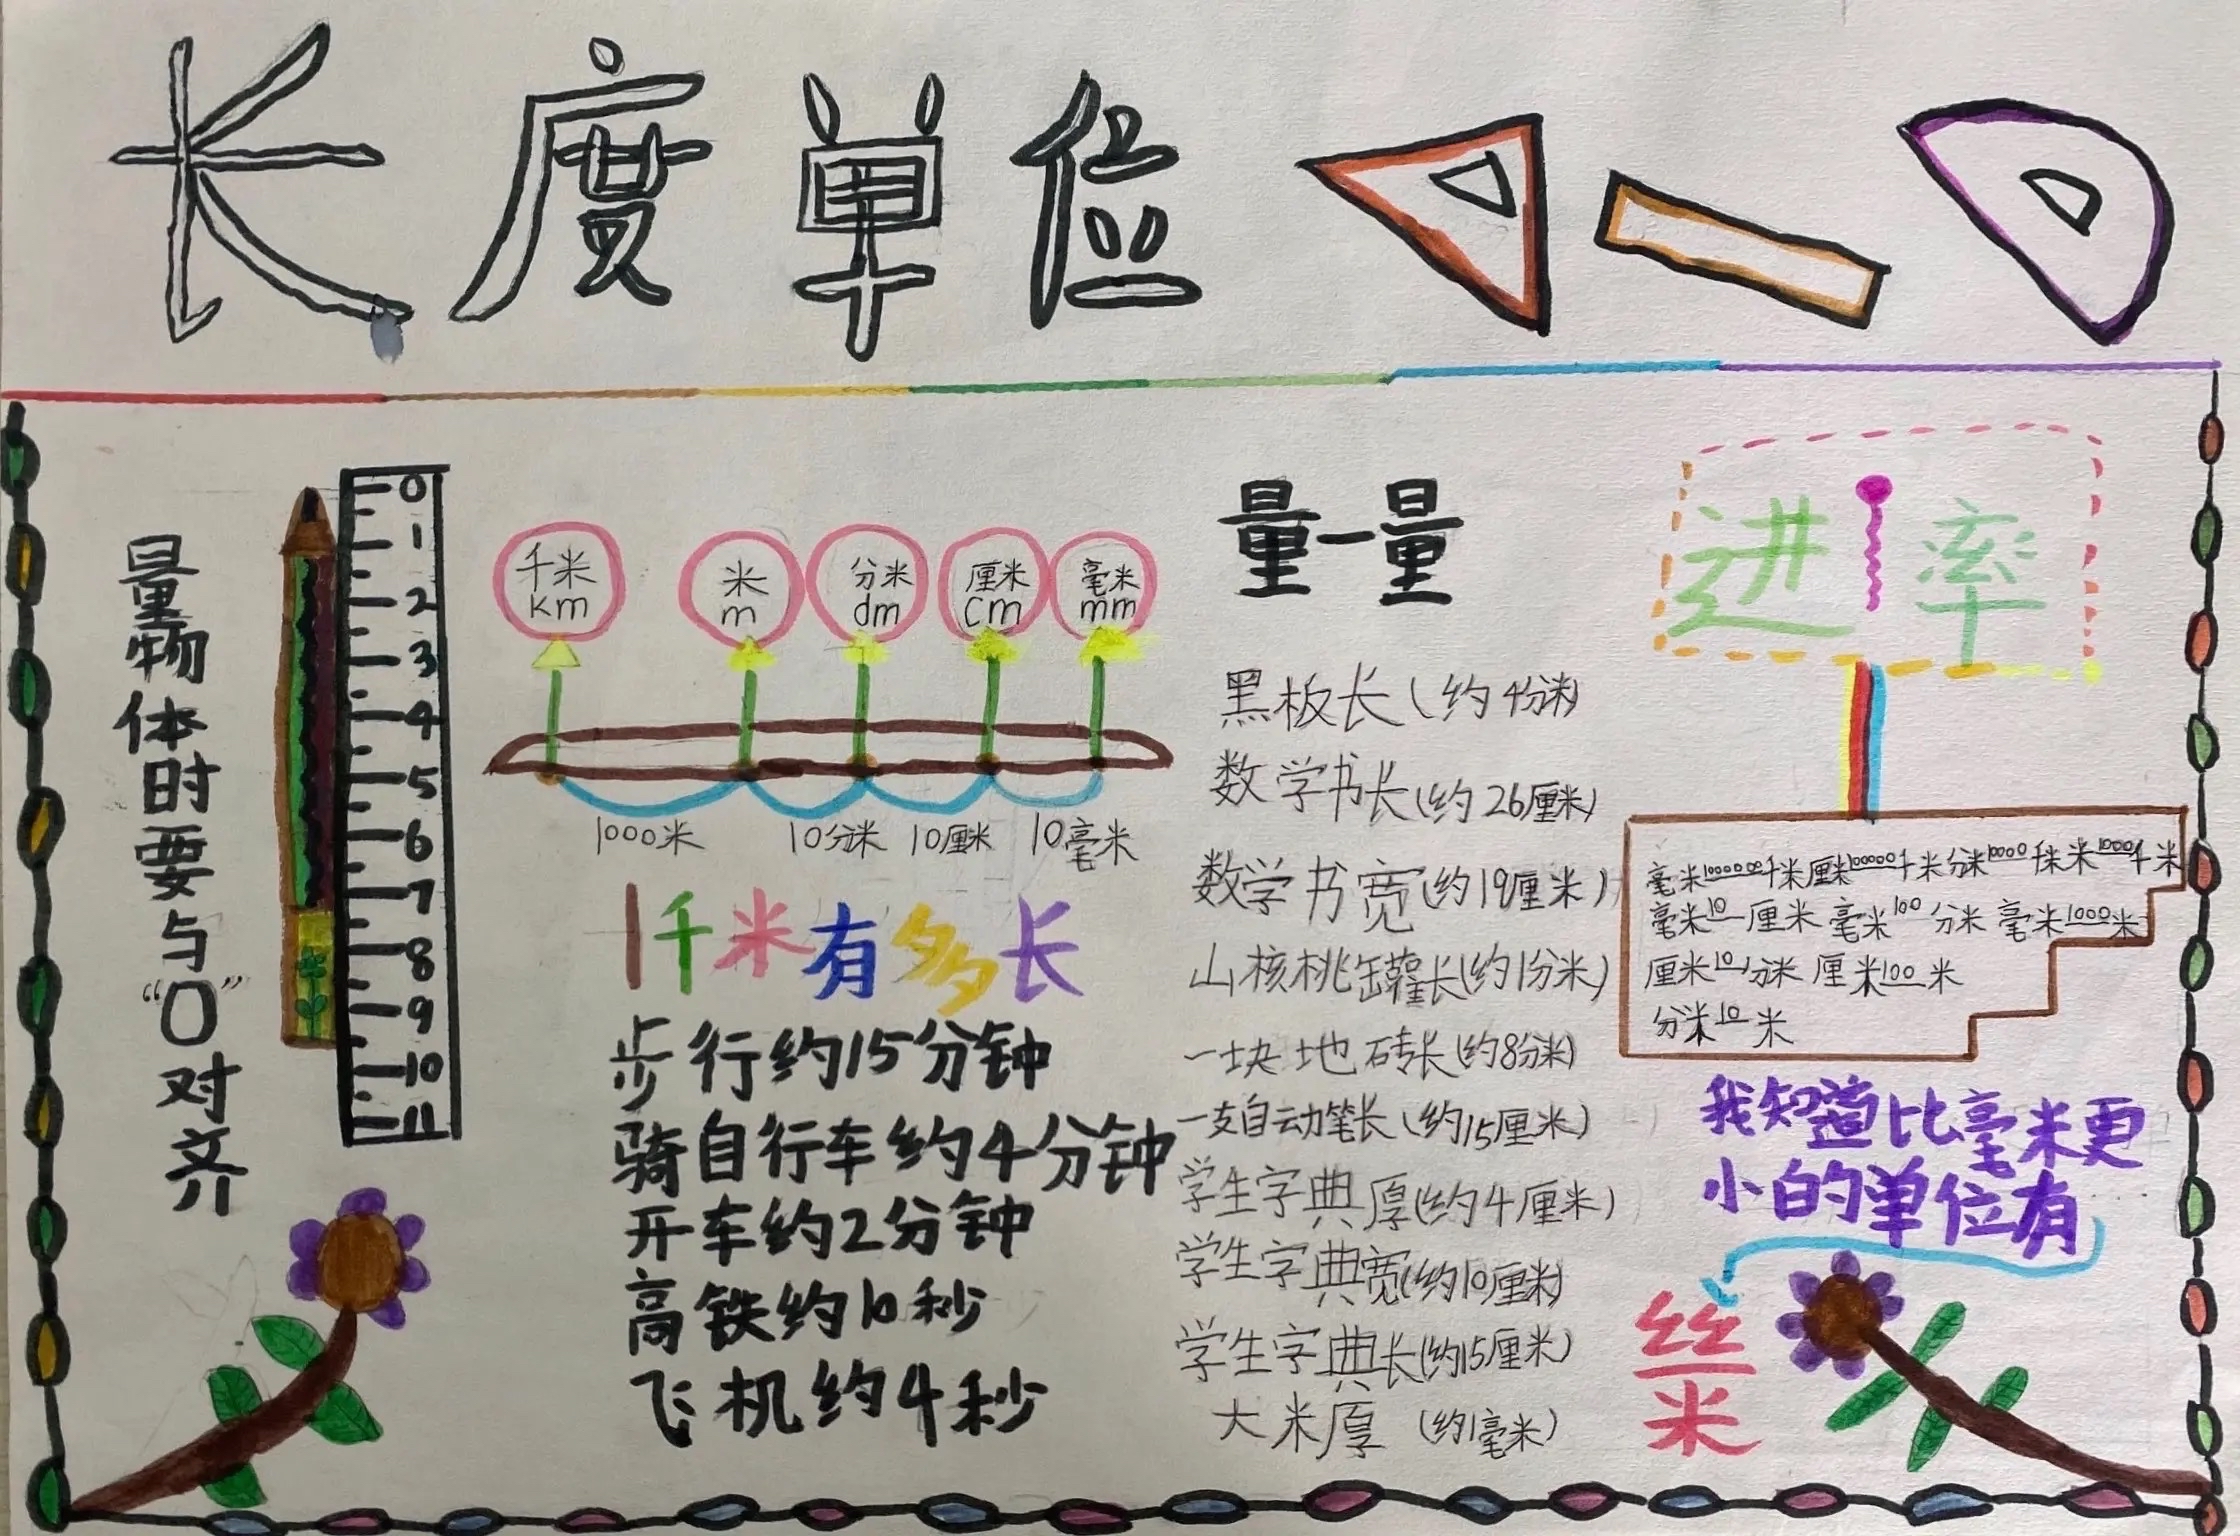 长度单位
量物体时要与“0”对齐
0
1
2
3
4
5
6
7
8
9
10
11
千米 米 分米 厘米 毫米
km m dm cm mm
1000米 10分米 10厘米 10毫米
1千米有多长
步行约15分钟
骑自行车约4分钟
开车约2分钟
高铁约10秒
飞机约4秒
量一量
黑板长(约4分米)
数学书长(约26厘米)
数学书宽(约19厘米)
山核桃罐长(约1分米)
一块地砖长(约8分米)
一支自动笔长(约15厘米)
学生字典厚(约4厘米)
学生字典宽(约10厘米)
学生字典长(约15厘米)
大米厚(约1毫米)
进率
毫米1000000千米 厘米100000千米 分米10000千米 米1000千米
毫米10厘米 毫米100分米 毫米1000米
厘米10分米 厘米100米
分米10米
我知道比毫米更
小的单位有
丝
米